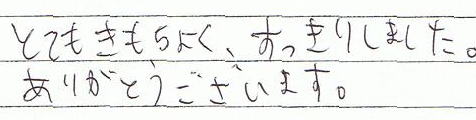 とてもきもちよく、すっきりしました。
ありがとうございます。